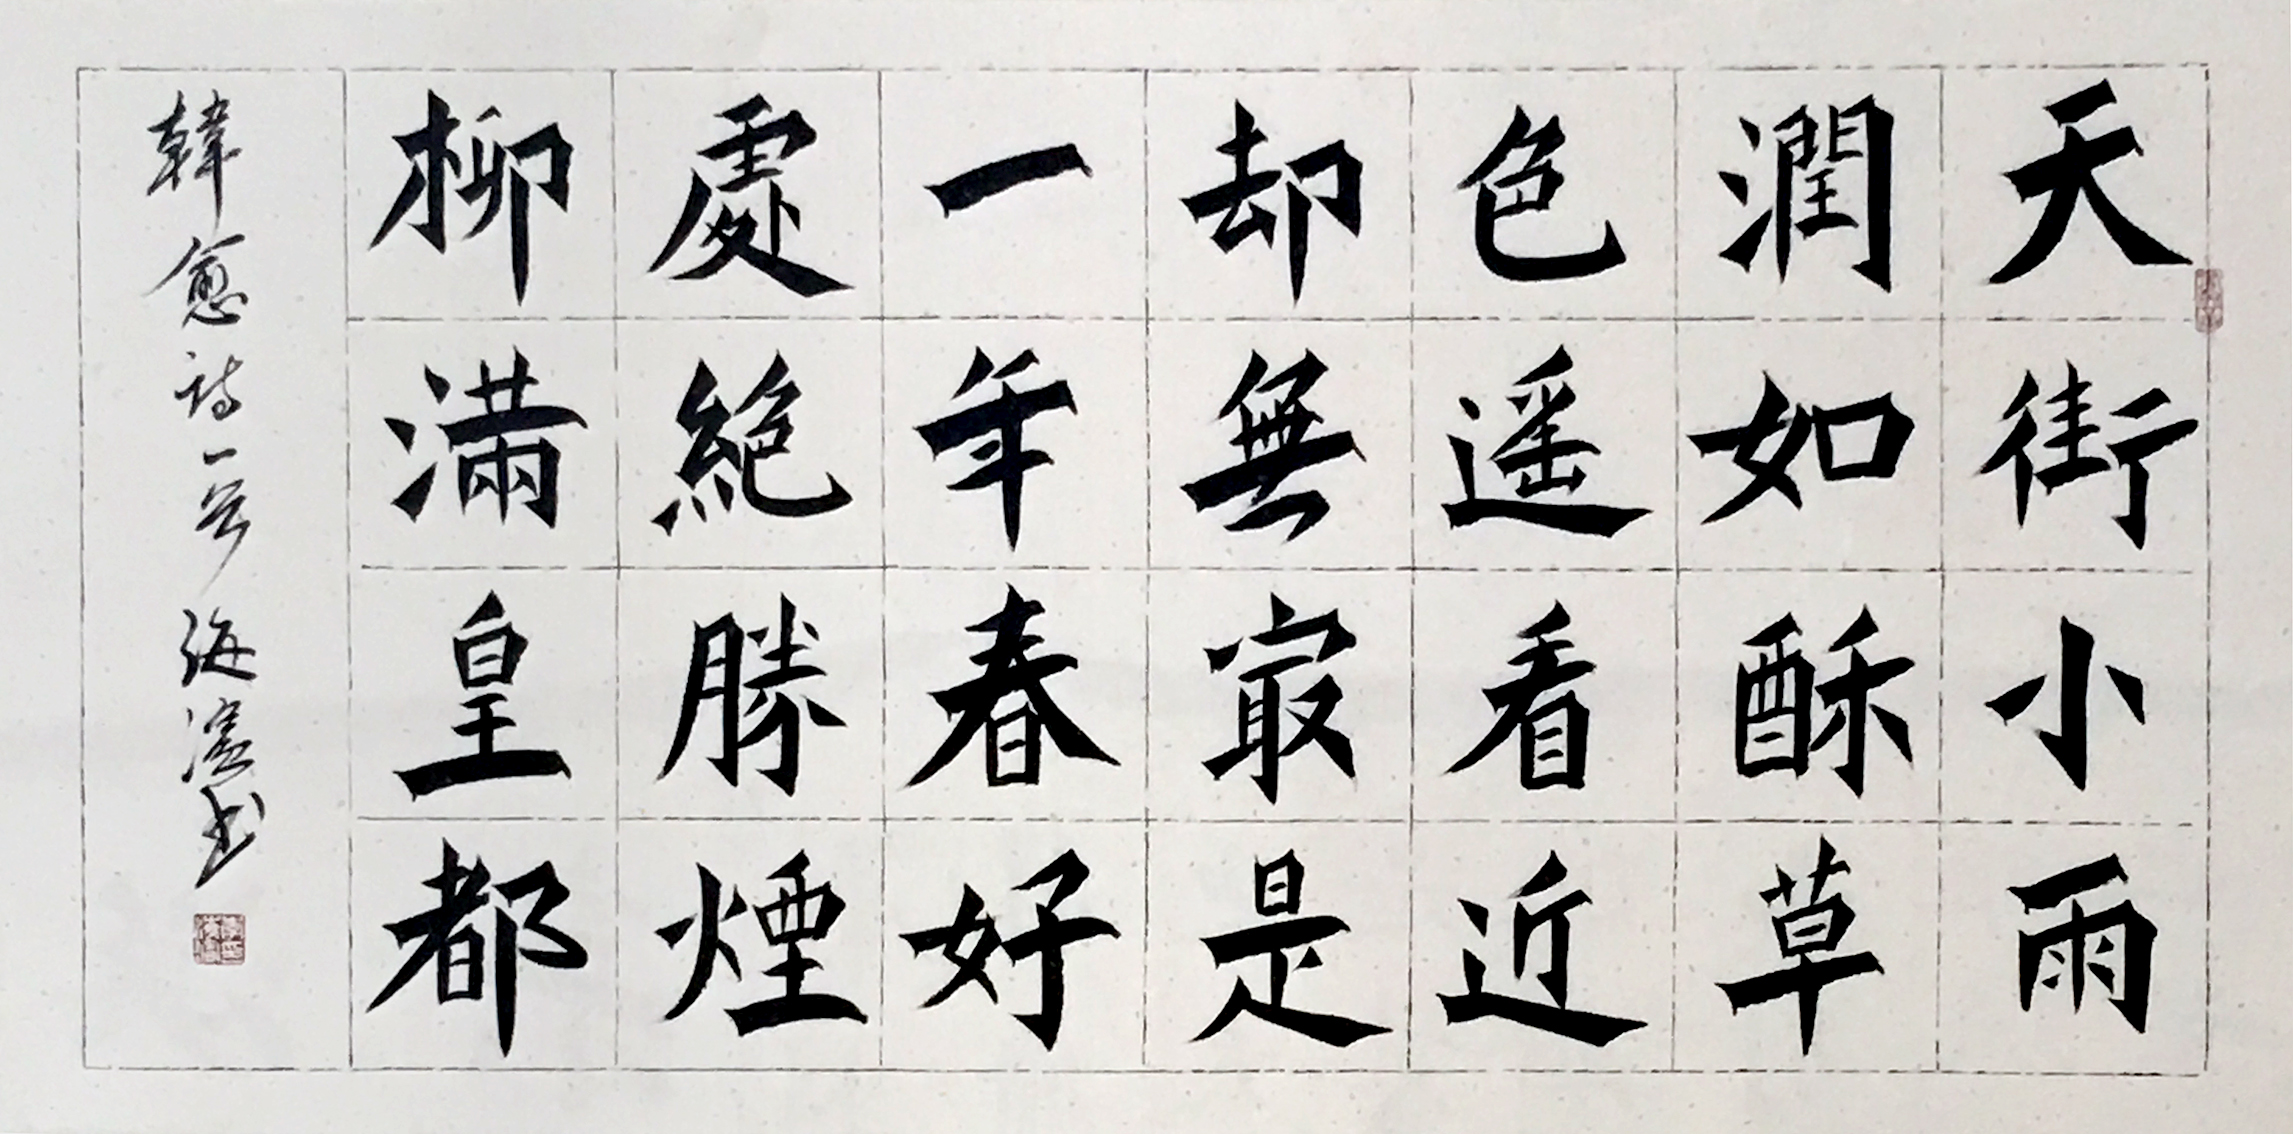 天街小雨
潤如酥草
色遥看近
却無最是
一年春好
處絕勝煙
柳滿皇都
韓愈詩一首 海 书